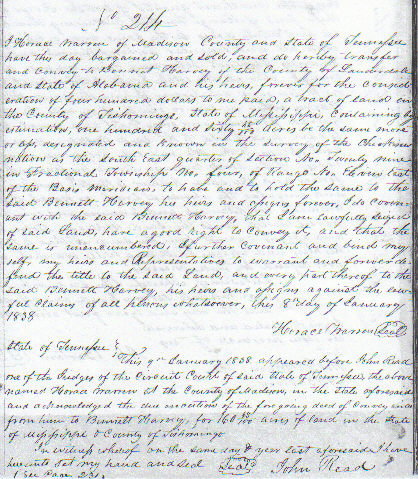 No 214
I Horace Warren of Madison County and State of Tennessee
have this day bargained and sold, and do hereby transfer
and convey to Bennet Harvey of the County of Lauderdale
and State of Alabama and his heirs, forever for the consid
eration of four hundred dollars to me paid, a tract of land in
the County of Tishomingo, State of Mississippi, Containing by
estimation, one hundred and sixty acres be the same more
or less, designated and known in the survey of the Chickasaw
nation as the South East quarter of Section No. twenty nine
in Fractional Township No. four, of Range No. eleven East
of the Basis Meridian, to have and to hold the same to the
said Bennett Harvey his heirs and assigns forever, I do coven
ant with the said Bennett Harvey, that I am lawfully seized
of said Land, have a good right to convey it, and that the
same is unencumbered; I further Covenant and bind my
self, my heirs and Representatives to warrant and forever de
fend the title to the said Land, and every part thereof to the
said Bennett Harvey, his heirs and assigns against the law
ful claims of all persons whatsoever, this 8th day of January
1838
Horace Warren Seal
State of Tennessee
This 9th January 1838 appeared before John Read
one of the Judges of the Circuit Court of said State of Tennessee, the above
named Horace Warren of the County of Madison, in the State aforesaid
and acknowledged the due execution of the foregoing deed of Conveyance
from him to Bennett Harvey, for 160 acres of land in the State
of Mississippi & County of Tishomingo
In witness whereof on the same day & year last aforesaid I have
hereunto set my hand and seal Seal John Read
(See Page 231